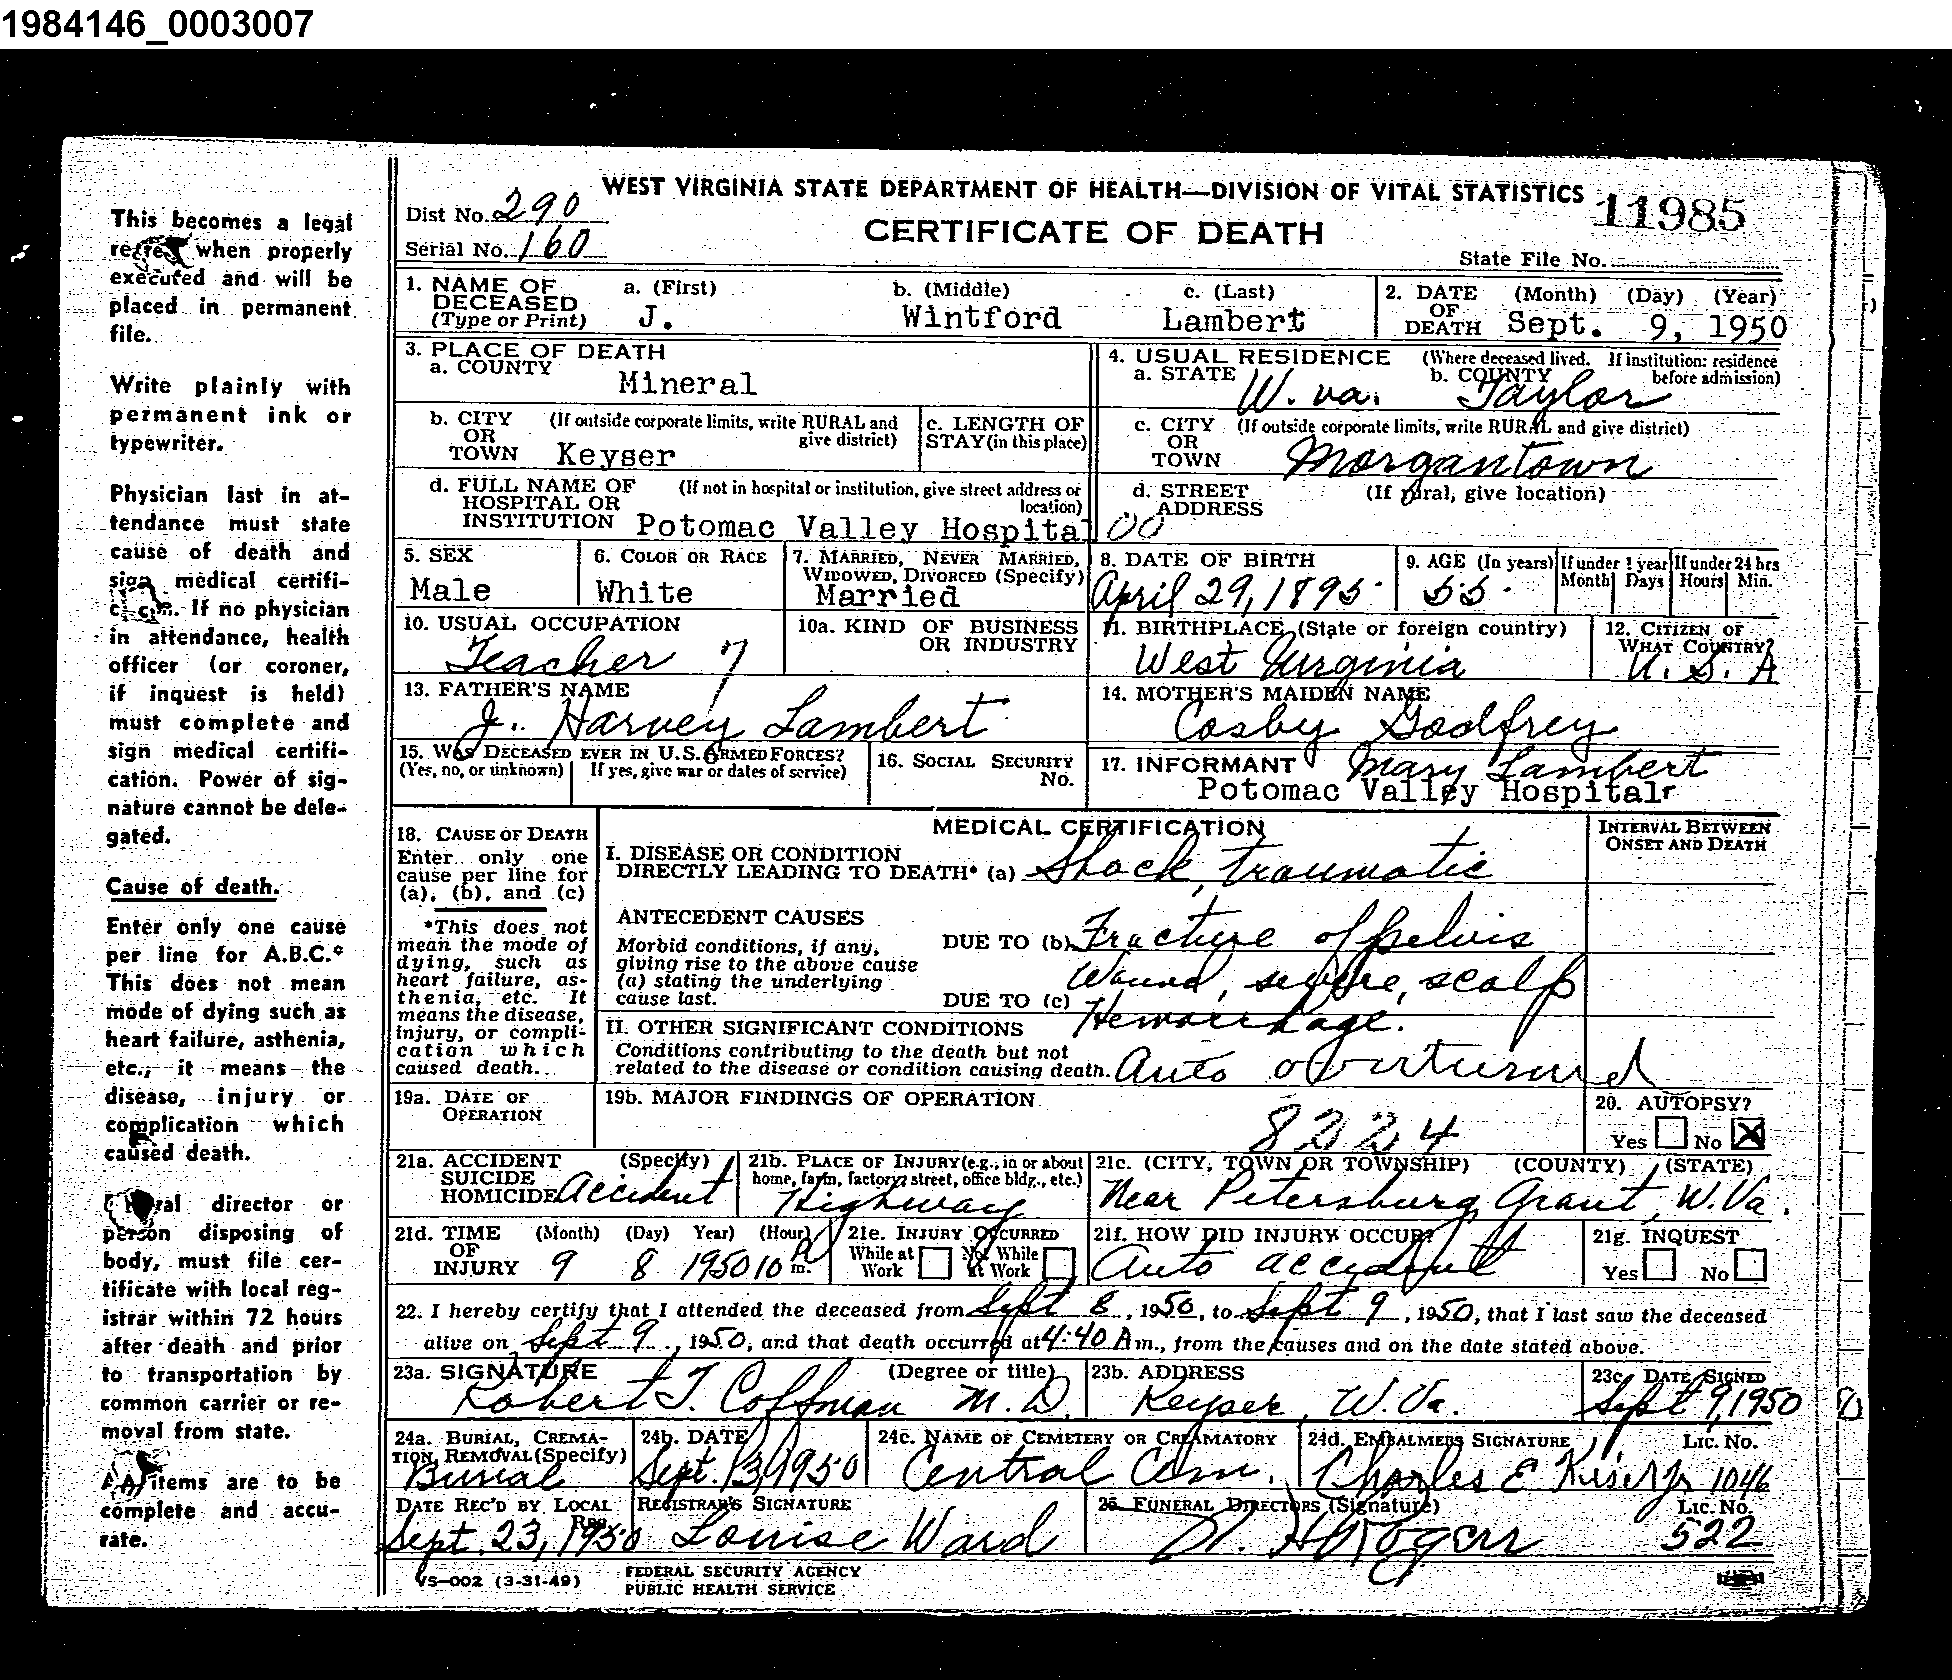 1984146_0003007
This becomes a legal
when properly
executed and will be
placed in permanent
file.
Write plainly with
permanent ink or
typewriter.
Physician last in at-
tendance must state
cause of death and
sign medical certifi-
If no physician
in attendance, health
officer (or coroner,
if inquest is held)
must complete and
sign medical certifi-
cation. Power of sig-
nature cannot be dele-
gated.
Cause of death.
Enter only one cause
per line for A.B.C.*
This does not mean
mode of dying such as
heart failure, asthenia,
etc., it means the
disease, injury or
complication which
caused death.
director or
person disposing of
body, must file cer-
tificate with local reg-
istrar within 72 hours
after death and prior
to transportation by
common carrier or re-
moval from state.
items are to be
complete and accu-
rate.
WEST VIRGINIA STATE DEPARTMENT OF HEALTH—DIVISION OF VITAL STATISTICS
Dist No. 290
CERTIFICATE OF DEATH
11985
Serial No. 160
State File No.
1. NAME OF DECEASED (Type or Print) a. (First) b. (Middle) c. (Last)
J. Wintford Lambert
2. DATE OF DEATH (Month) (Day) (Year)
Sept. 9, 1950
3. PLACE OF DEATH
a. COUNTY Mineral
4. USUAL RESIDENCE (Where deceased lived. If institution: residence before admission)
a. STATE W. va. b. COUNTY Taylor
b. CITY OR TOWN (If outside corporate limits, write RURAL and give district)
Keyser
c. LENGTH OF STAY (in this place)
c. CITY OR TOWN (If outside corporate limits, write RURAL and give district)
Morgantown
d. FULL NAME OF HOSPITAL OR INSTITUTION (If not in hospital or institution, give street address or location)
Potomac Valley Hospital
d. STREET ADDRESS (If rural, give location)
00
5. SEX
Male
6. COLOR OR RACE
White
7. MARRIED, NEVER MARRIED, WIDOWED, DIVORCED (Specify)
Married
8. DATE OF BIRTH
April 29, 1895
9. AGE (In years)
55
If under 1 year Month Days
If under 24 hrs Hours Min.
10. USUAL OCCUPATION
Teacher 7
10a. KIND OF BUSINESS OR INDUSTRY
11. BIRTHPLACE (State or foreign country)
West Virginia
12. CITIZEN OF WHAT COUNTRY?
U. S. A
13. FATHER'S NAME
J. Harvey Lambert
14. MOTHER'S MAIDEN NAME
Cosby Godfrey
15. WAS DECEASED EVER IN U.S. ARMED FORCES?
(Yes, no, or unknown) If yes, give war or dates of service)
16. SOCIAL SECURITY No.
17. INFORMANT Mary Lambert
Potomac Valley Hospital
18. CAUSE OF DEATH
Enter only one
cause per line for
(a), (b), and (c)
*This does not
mean the mode of
dying, such as
heart failure, as-
thenia, etc. It
means the disease,
injury, or compli-
cation which
caused death.
MEDICAL CERTIFICATION
INTERVAL BETWEEN ONSET AND DEATH
I. DISEASE OR CONDITION
DIRECTLY LEADING TO DEATH* (a) Shock, traumatic
ANTECEDENT CAUSES
Morbid conditions, if any,
giving rise to the above cause
(a) stating the underlying
cause last.
DUE TO (b) Fracture of pelvis
Wound, severe, scalp
DUE TO (c) Hemorrhage.
II. OTHER SIGNIFICANT CONDITIONS
Conditions contributing to the death but not
related to the disease or condition causing death. Auto overturned
19a. DATE OF OPERATION
19b. MAJOR FINDINGS OF OPERATION
8224
20. AUTOPSY?
Yes No X
21a. ACCIDENT SUICIDE HOMICIDE (Specify)
Accident
21b. PLACE OF INJURY (e.g., in or about home, farm, factory, street, office bldg., etc.)
Highway
21c. (CITY, TOWN OR TOWNSHIP) (COUNTY) (STATE)
Near Petersburg Grant, W. Va.
21d. TIME OF INJURY (Month) (Day) Year) (Hour)
9 8 1950 10 A m.
21e. INJURY OCCURRED
While at Work Not While at Work
21f. HOW DID INJURY OCCUR?
Auto accident
21g. INQUEST
Yes No
22. I hereby certify that I attended the deceased from Sept 8, 1950, to Sept 9, 1950, that I last saw the deceased
alive on Sept 9, 1950, and that death occurred at 4:40 A m., from the causes and on the date stated above.
23a. SIGNATURE (Degree or title)
Robert T. Coffman M.D.
23b. ADDRESS
Keyser, W. Va.
23c. DATE SIGNED
Sept 9, 1950
24a. BURIAL, CREMATION, REMOVAL (Specify)
Burial
24b. DATE
Sept. 13, 1950
24c. NAME OF CEMETERY OR CREMATORY
Central Cem.
24d. EMBALMERS SIGNATURE Lic. No.
Charles E Kiser Jr 1046
DATE REC'D BY LOCAL REG.
Sept. 23, 1950
REGISTRAR'S SIGNATURE
Louise Ward
25. FUNERAL DIRECTORS (Signature) Lic. No.
Rogers 522
VS-002 (3-31-49)
FEDERAL SECURITY AGENCY
PUBLIC HEALTH SERVICE